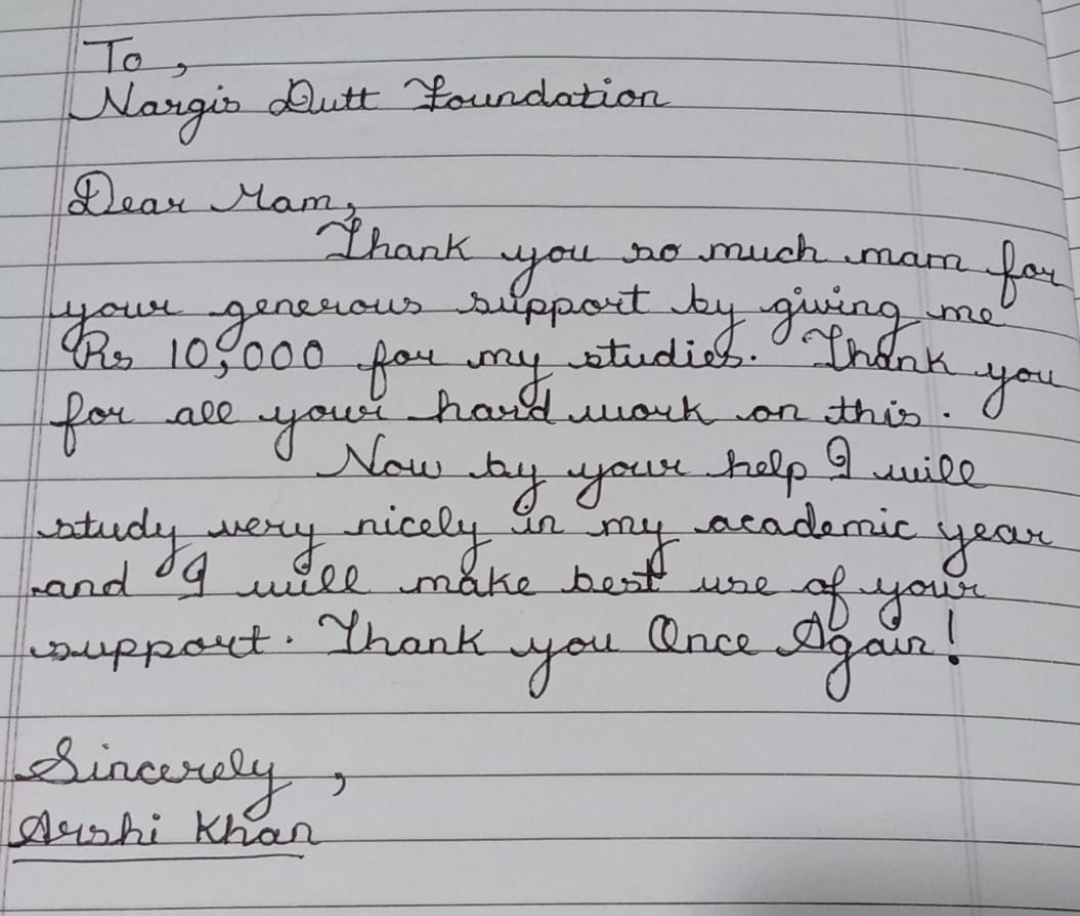 To,
Nargis Dutt Foundation
Dear Mam,
Thank you so much mam for
your generous support by giving me
Rs 10,000 for my studies. Thank you
for all your hard work on this.
Now by your help I will
study very nicely in my academic year
and I will make best use of your
support. Thank you Once Again!
Sincerely,
Arshi Khan